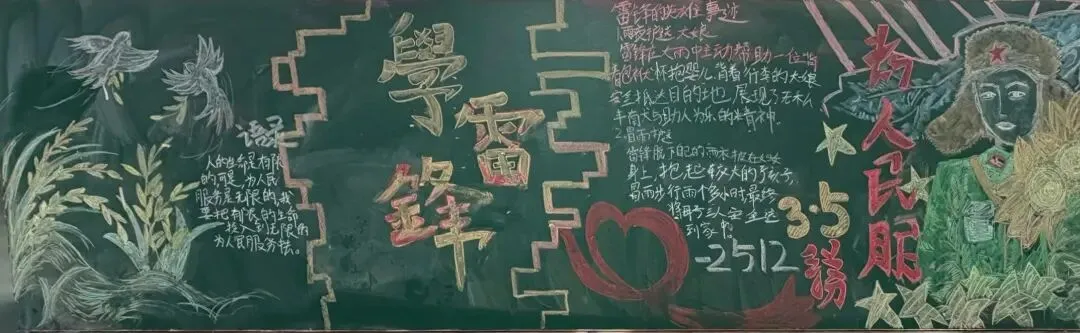 语录
人的生命是有限
的,可是,为人民
服务是无限的,我
要把有限的生命
投入到无限的
为人民服务去。
學
雷
鋒
雷锋的英雄事迹
1.雨夜护送大娘
雷锋在大雨中主动帮助一位背
着包伏怀抱婴儿,背着行李的大娘
安全抵达目的地,展现了无私
奉献与助人为乐的精神。
2.冒雨护送
雷锋脱下自己的雨衣披在
身上,抱起大的孩子,
冒雨步行两个多小时最终
将母子三人安全送
到家中
3·5
-2512
为人民服
務